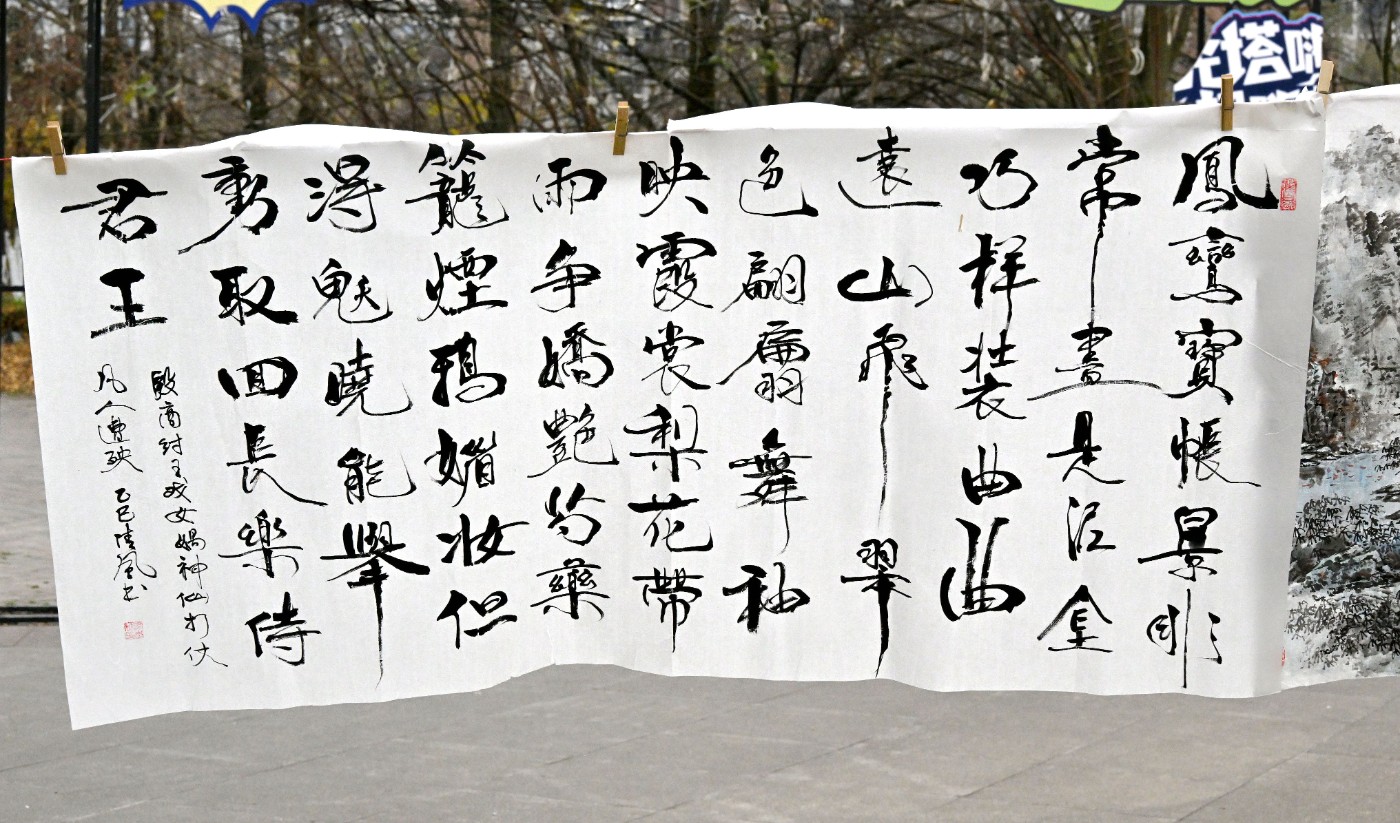 鳳鸞寶帳景非
常盡是泥金
巧样装曲曲
遠山飛翠
色翩翩舞袖
映霞裳梨花帶
雨争嬌艷芍藥
籠煙鴉媚妆但
得魅曉能舉
動取回長樂侍
君王
殷商紂王戏女媧神仙打仗
凡人遭殃 乙巳清風书
塔嗨